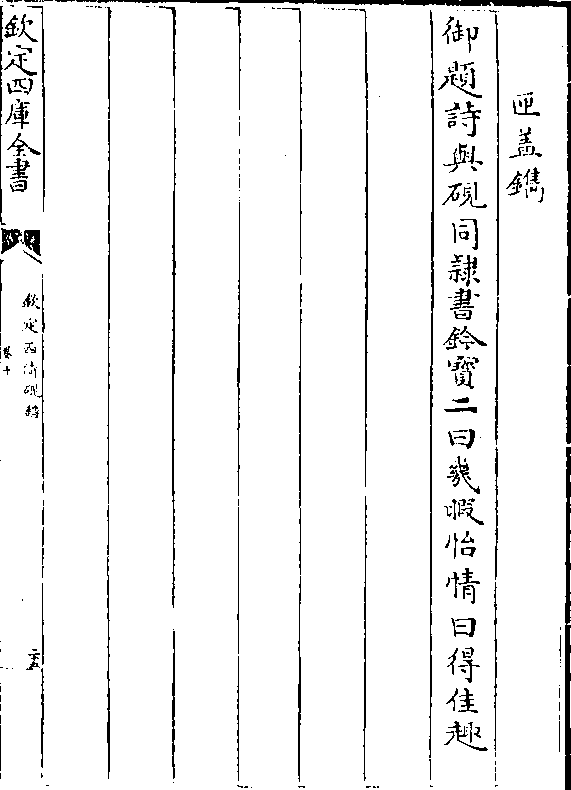 匣盖鐫
御題詩與硯同隷書鈐寳二曰㡬暇怡情曰得佳趣
欽定四庫全書
欽定西清硯譜
卷十
二十五